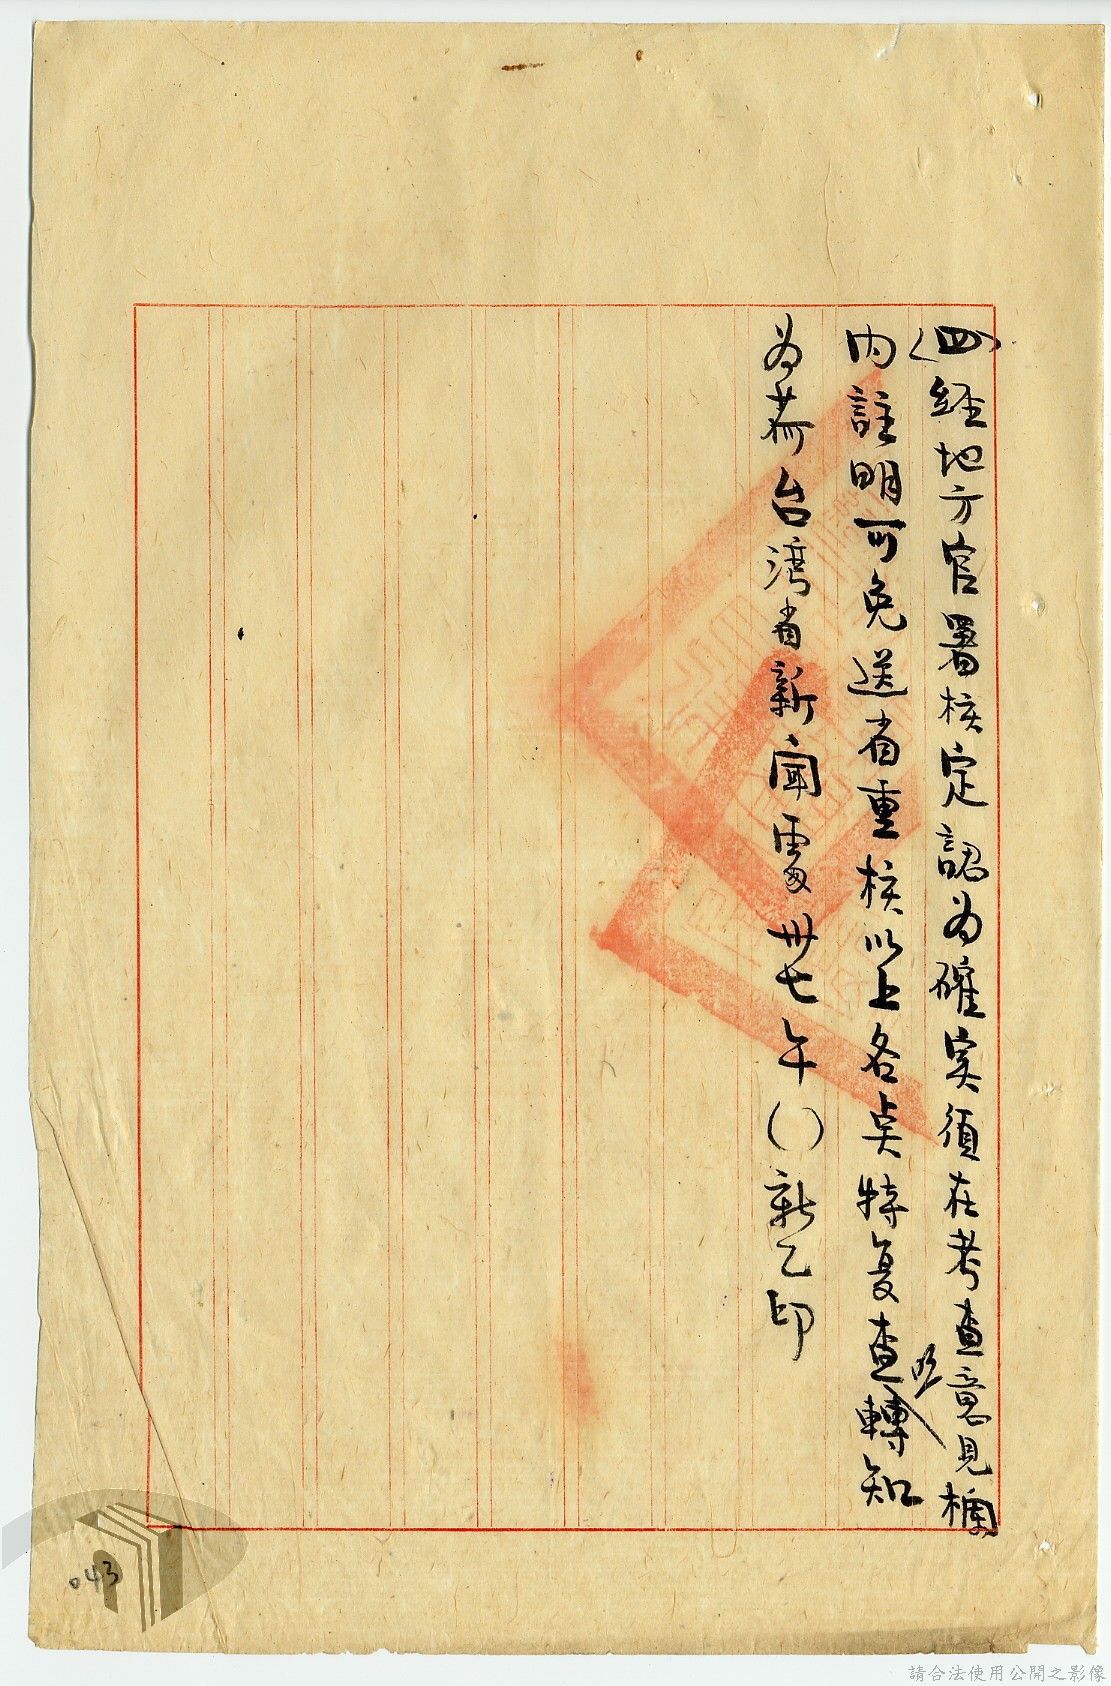 ㈣經地方官署核定認为確实須在考查意見欄
内註明可免送省重核以上各点特复查照轉知
为荷台湾省新闻處卅七午()新乙印
043
請合法使用公開之影像